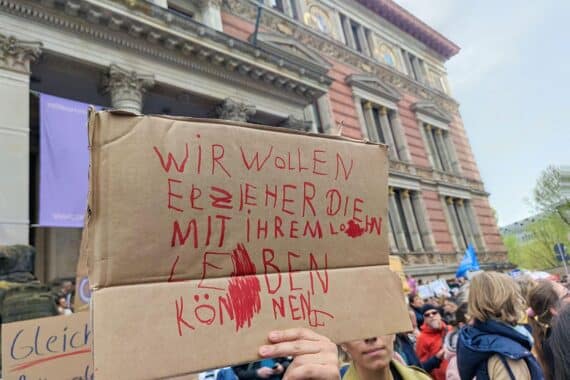 WIR WOLLEN
ERZIEHER DIE
MIT IHREM LOHN
LEBEN
KÖNNEN
Gleich